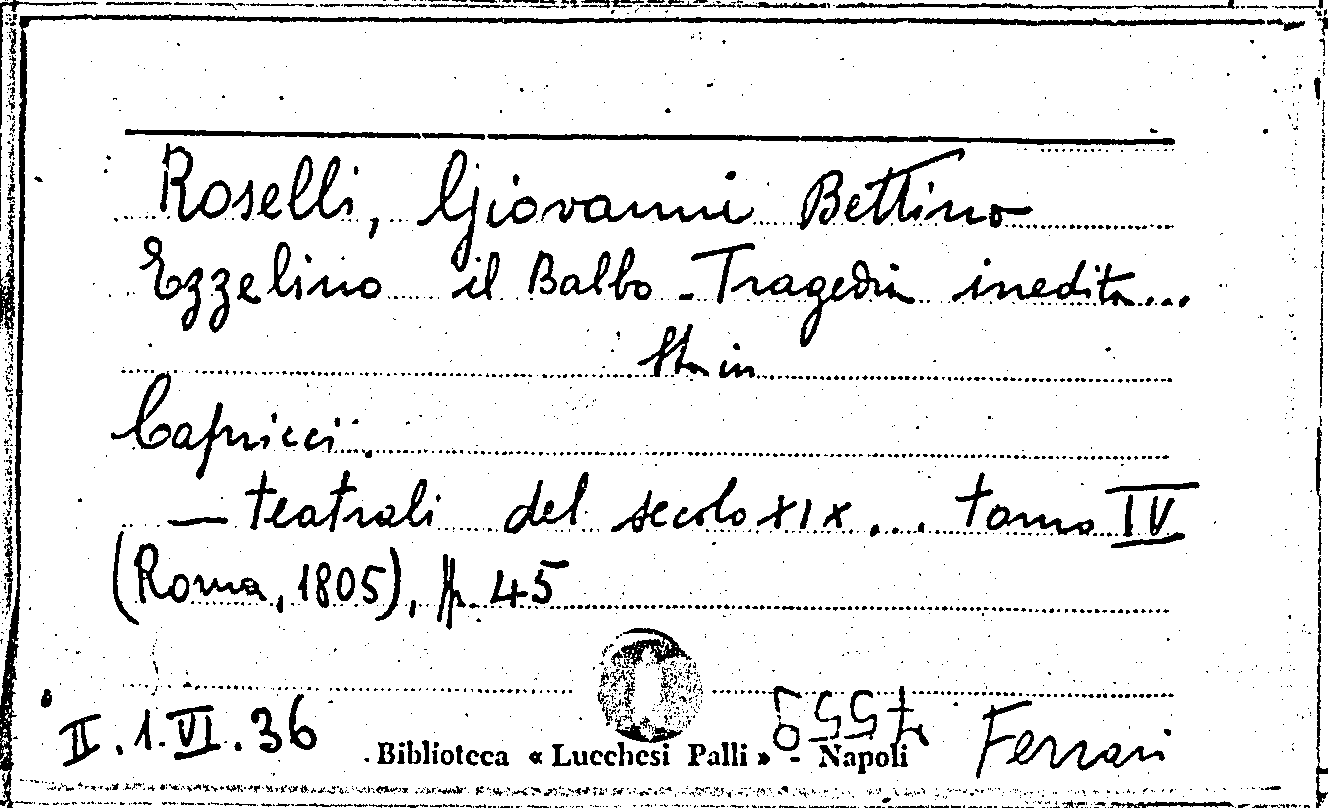 Roselli, Giovanni Bettino
Ezzelino il Balbo - Tragedia inedita...
Sta in
Capricci.
— teatrali del secolo XIX... tomo IV
(Roma, 1805), pp. 45
II.1.VI.36
Biblioteca « Lucchesi Palli » - Napoli
Ferrari